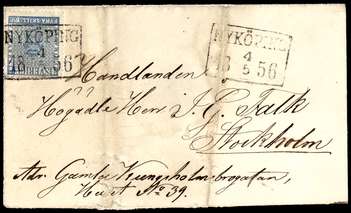 NYKÖPING
4
18 56
NYKÖPING
4
5
18 56
Handlanden
Högädle Herr J. G. Falk
Stockholm
Adr. Gamla Kungsholmsbrogatan,
Huset No 39.